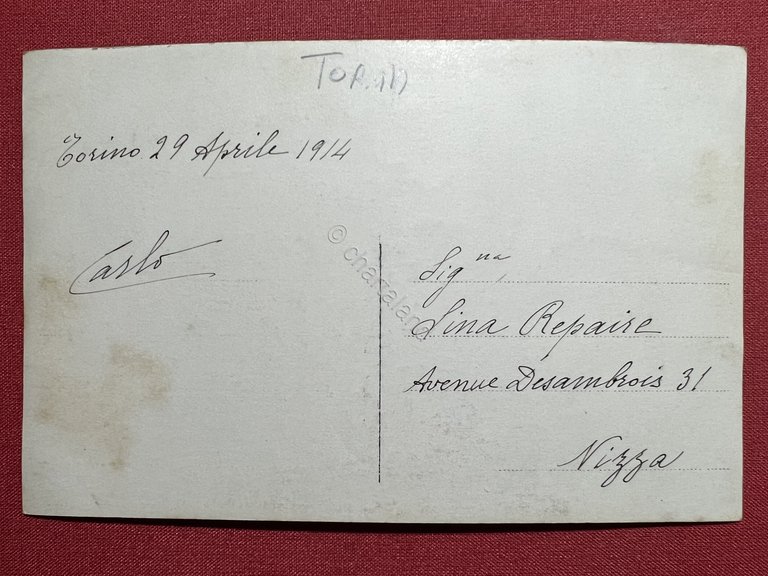 TORINO
Torino 29 Aprile 1914
Carlo
© charzaland
Sig.na,
Lina Repaire
Avenue Desambrois 31
Nizza